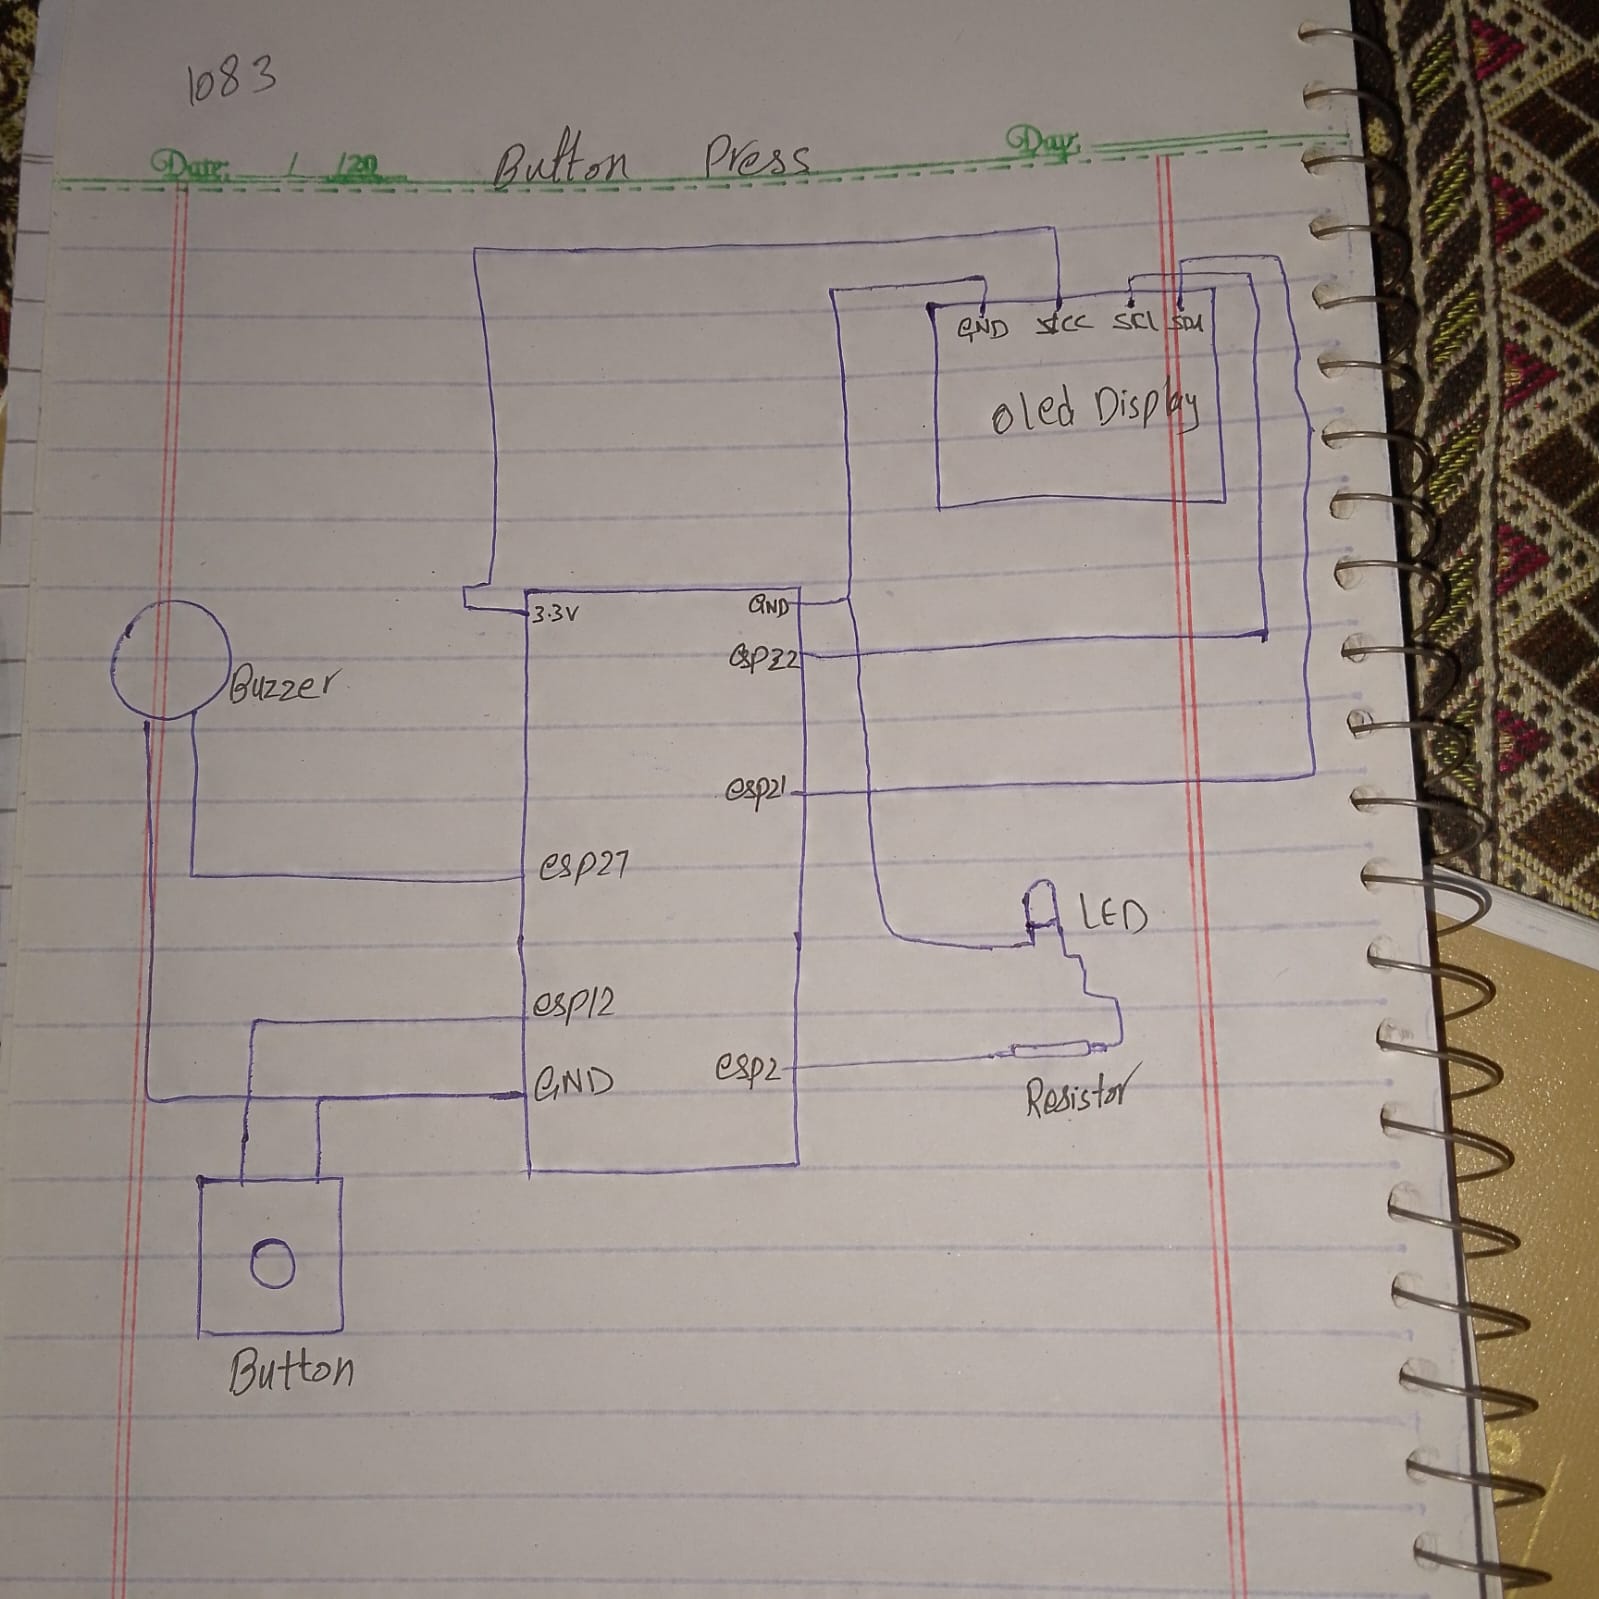 1083
Date: / /20 Button Press Day:
GND VCC SCl SDA
oled Display
3.3V GND
esp22
Buzzer
esp21
esp27
LED
esp12
GND esp2
Resistor
Button